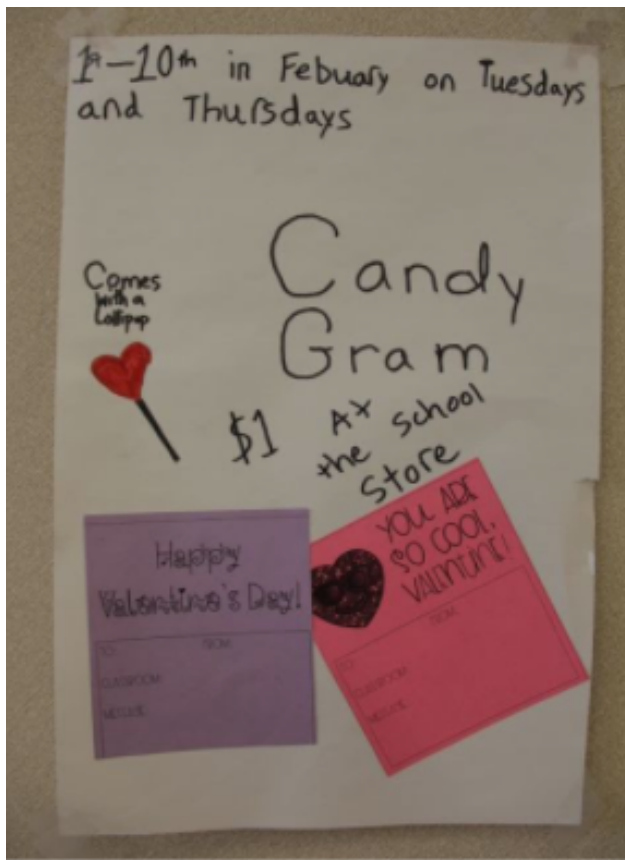 1st-10th in Febuary on Tuesdays
and Thursdays
Candy
Gram
Comes
with a
Lollipop
$1
At
the school
store
Happy
Valentine's Day!
TO: FROM:
CLASSROOM:
MESSAGE:
YOU ARE
SO COOL,
VALENTINE!
FROM:
TO:
CLASSROOM:
MESSAGE: